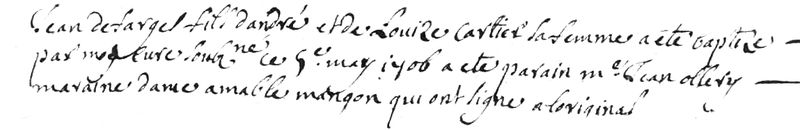 Jean defarges fils dandré et de Louize Cartier sa femme a ete baptize
par moy cure soubzne ce 5e may 1706 a ete parain mr Jean ollery
maraine dame amable mangon qui ont signe a loriginal